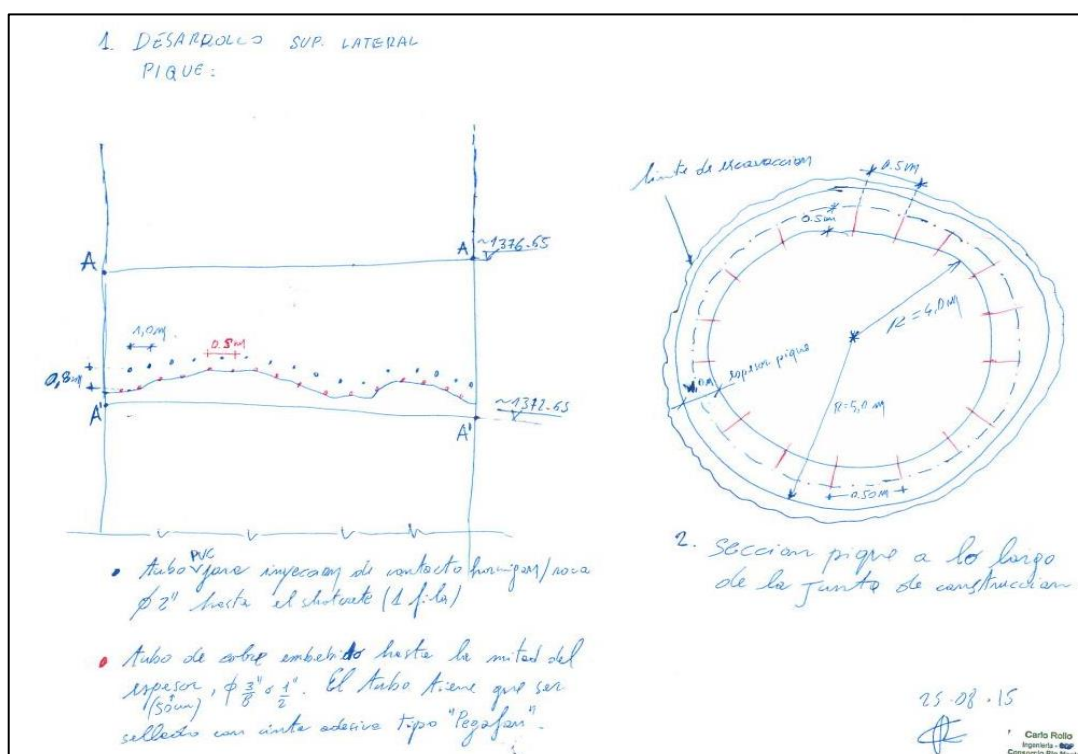 1. DESARROLLO SUP. LATERAL
PIQUE:
A
A ~1376.65
1,0m
0.5m
0,8m
A'
A' ~1372.65
• tubo PVC para inyeccion de contacto hormigon/roca
φ 2" hasta el shotcrete (1 fila)
• tubo de cobre embebido hasta la mitad del
espesor, φ 3/8" o 1/2". El tubo tiene que ser
(50cm)
sellado con cinta adesiva tipo "Pegafan".
limite de escavaccion
0.5m
0.5m
R=4,0m
espesor pique
R=5,0m
0.50m
2. Seccion pique a lo largo
de la junta de construccion
25.08.15
Carlo Rollo
Ingeniería